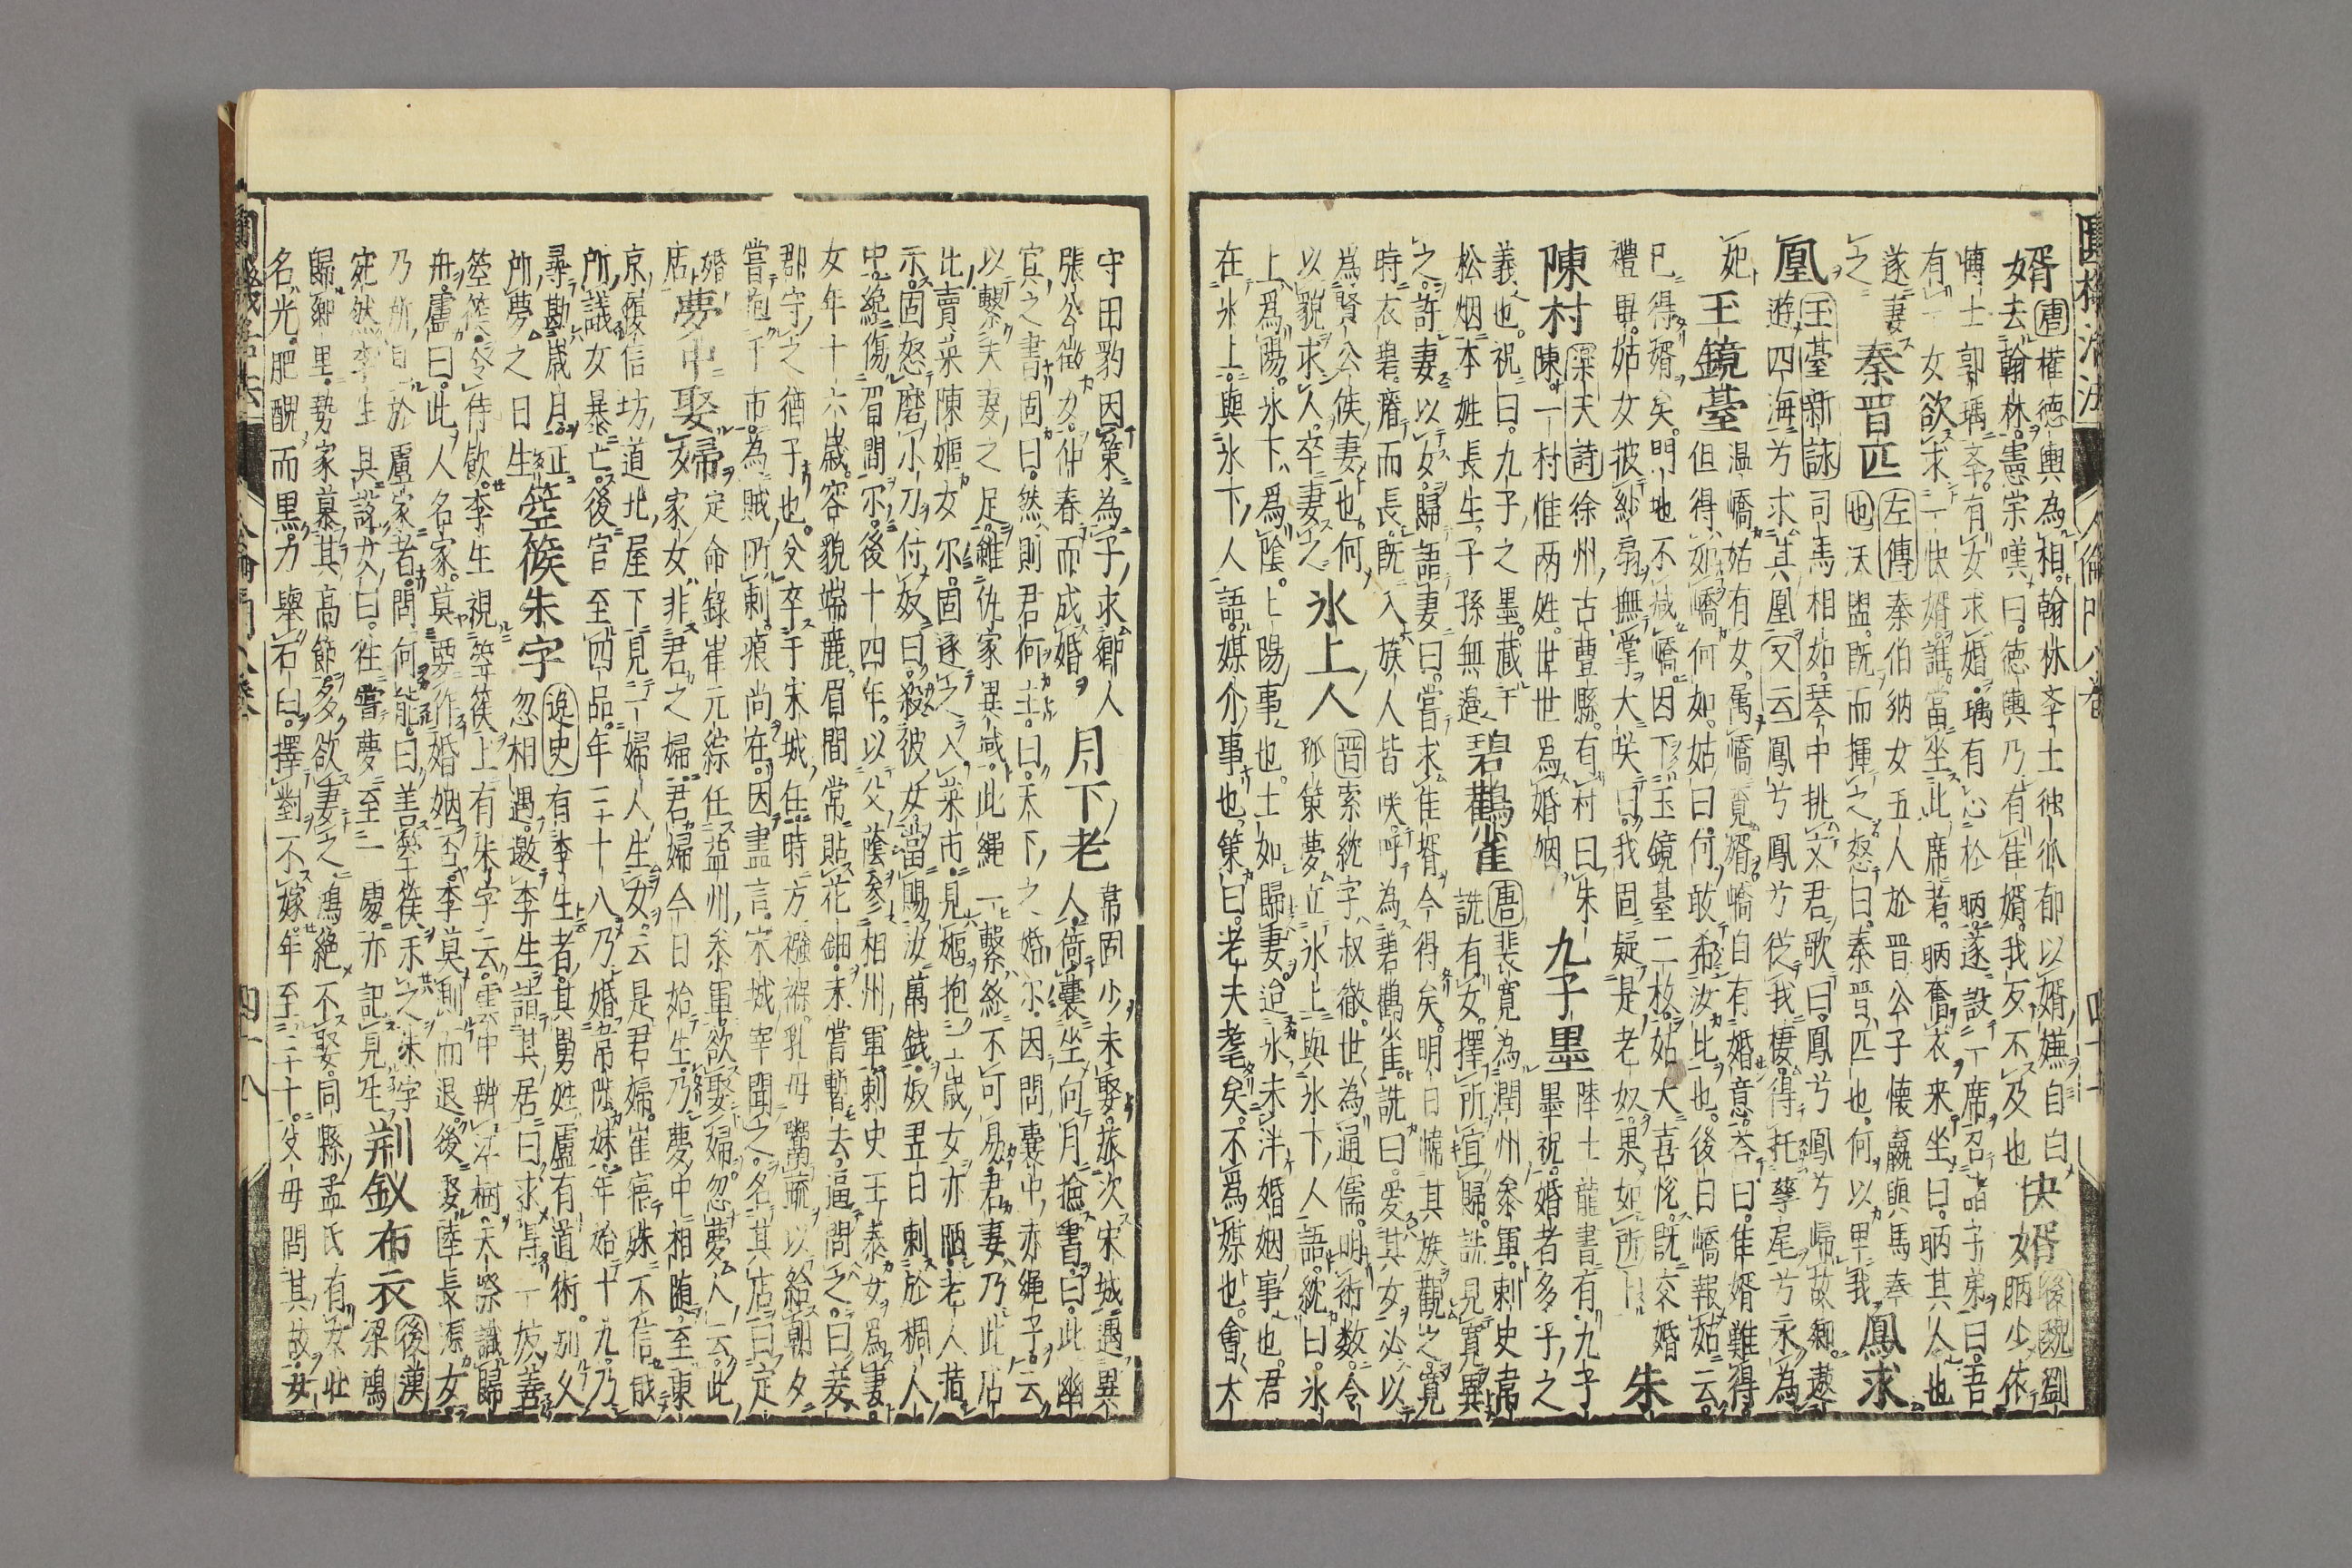 圓機活法 人倫門八卷 四十七
婿 唐 權德輿為相翰林李士獨孤郁以婿嫌自白
去翰林憲宗嘆曰德輿乃有佳婿我反不及也 快婿 後魏 劉
昞少依
博士郭瑀李有女求婚瑀有心於昞遂設一席召諸字弟曰吾
有一女欲求一快婿誰當坐此席者昞奮衣来坐曰昞其人也
遂妻
之 秦晋匹 左傳 秦伯納女五人於晋公子懷嬴與焉奉
也沃盥既而揮之怒曰秦晋匹也何以卑我 鳳求
凰 玉臺新詠 司馬相如琴中挑文君歌曰鳳兮鳳兮歸故鄉遨
遊四海兮求其凰 又云 鳳兮鳳兮從我棲得托孳尾兮永為
妃 玉鏡臺 温嶠姑有女属嶠覓婿嶠自有婚意答曰佳婿難得
但得如嶠何如姑曰何敢希汝比也後日嶠報姑云
已得婿矣門地不减嶠因下玉鏡臺二枚姑大喜悅既交婚
禮畢姑女披紗扇撫掌大咲曰我固疑是老奴果如所卜 朱
陳村 樂天詩 徐州古豊縣有村曰朱
陳一村惟两姓世世為婚姻 九子墨 陸士龍書有九子
墨祝婚者多子之
義也祝曰九子之墨藏于
松烟本姓長生子孫無邊 碧鸛雀 唐 裴寛為潤州叅軍刺史韋
詵有女擇所宜歸詵見寛異
之許妻以女歸語妻曰當求佳婿今得矣明日幃其族觀之寛
時衣碧瘠而長既入族人皆咲呼為碧鸛雀詵曰爱其女必以
為賢公侯妻也何
以貌求人卒妻之 氷上人 晋 索紞字叔徹世為通儒明術数令
狐策夢立氷上與氷下人語紞曰氷
上為陽氷下為陰陰陽事也士如歸妻迨氷未泮婚姻事也君
在氷上與氷下人語媒介事也策曰老夫耄矣不為媒也會太
守田豹因策為子求鄉人
張公徵女仲春而成婚 月下老 韋固少未娶旅次宋城遇異
人倚囊坐向月撿書曰此幽
冥之書固曰然則君何主曰天下之婚尓因問囊中赤繩子云
以繫夫妻之足雖仇家異域此繩一繫終不可易君妻乃此店
北賣菜陳嫗女尓固逐之入菜市見嫗抱二歲女亦陋老人指
示固怒磨小刀付奴曰殺彼女當賜汝萬錢奴翌日刺於稠人
中纔傷眉間尓後十四年以父蔭參相州軍刺史王泰女為妻
女年十六歲容貌端麗眉間常貼花鈿未嘗暫去逼問之曰妾
郡守之猶子也父卒于宋城任時方襁褓乳母鬻蔬以給朝夕
嘗抱于市為賊所刺痕尚在因盡言宋城宰聞之名其店曰定
婚
店 夢中娶婦 定命錄崔元綜任益州叅軍欲娶婦忽夢人云此
家女非君之婦君婦今日始生乃夢中相随至東
京履信坊道北屋下見一婦人生女云是君婦崔寤殊不信俄
所議女暴亡後官至四品年五十八乃婚韋陟妹年始十九乃
尋勘歳月正
所夢之日生 箜篌朱字 逸史 有李生者其舅姓盧有道術别久
忽相遇邀李生詣其居曰求得一妓善
箜篌令侍飲李生視箜篌上有朱字云雲中辨江樹天際識歸
舟盧曰此人名家莫要作婚姻否李莫測而退後娶陸長源女
乃所見於盧家者問何能曰善箜篌示之朱字
宛然李生具說女曰往嘗夢至一處亦記見生 荆釵布衣 後漢
梁鴻
歸鄉里勢家慕其高節多欲妻之鴻絶不娶同縣孟氏有女壮
名光肥醜而黒力舉石臼擇對不嫁年至三十父母問其故女
四十八